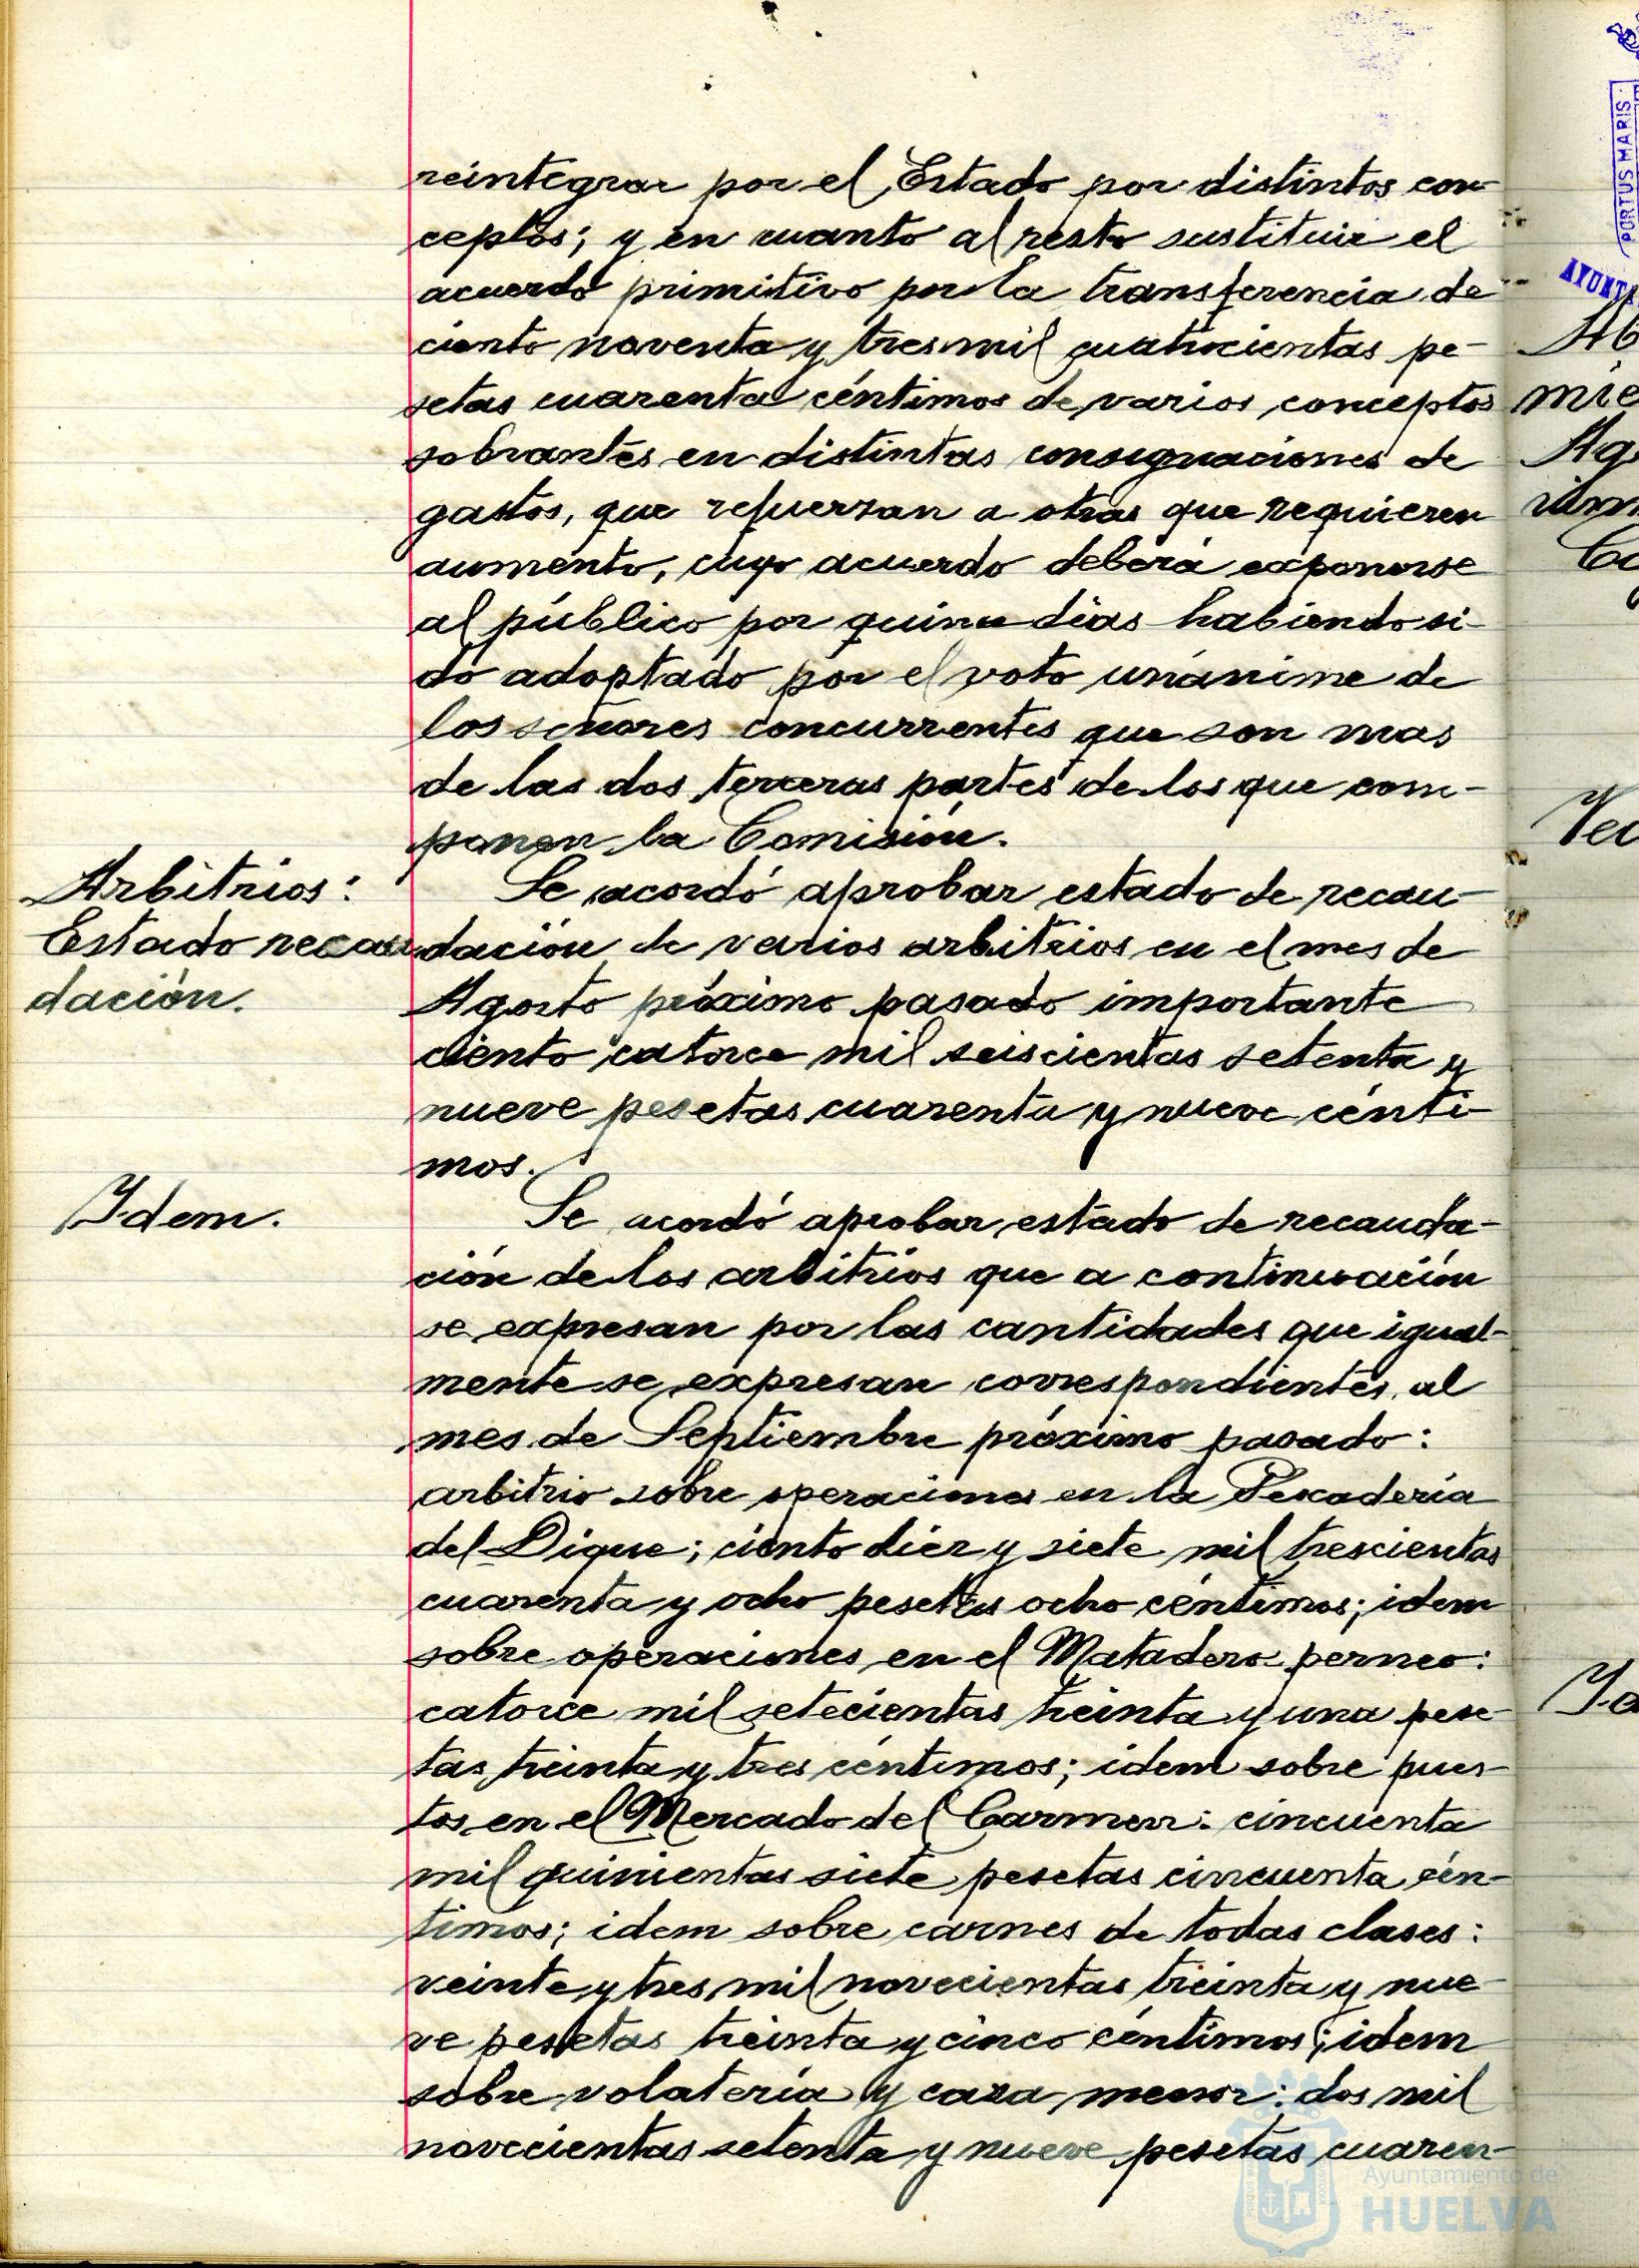 reintegrar por el Estado por distintos con-
ceptos; y en cuanto al resto sustituir el
acuerdo primitivo por la transferencia de
ciento noventa y tres mil cuatrocientas pe-
setas cuarenta céntimos de varios conceptos
sobrantes en distintas consignaciones de
gastos, que refuerzan a otras que requieren
aumento, cuyo acuerdo deberá exponerse
al público por quince dias habiendo si-
do adoptado por el voto unánime de
los señores concurrentes que son mas
de las dos terceras partes de los que com-
ponen la Comisión.
Arbitrios:
Estado recau
dación.
Se acordó aprobar estado de recau-
dación de varios arbitrios en el mes de
Agosto próximo pasado importante
ciento catorce mil seiscientas setenta y
nueve pesetas cuarenta y nueve cénti-
mos.
Idem.
Se acordó aprobar estado de recauda-
ción de los arbitrios que a continuación
se expresan por las cantidades que igual-
mente se expresan correspondientes al
mes de Septiembre próximo pasado:
arbitrio sobre operaciones en la Pescadería
del Dique; ciento diez y siete mil trescientas
cuarenta y ocho pesetas ocho céntimos; idem
sobre operaciones en el Matadero perneo:
catorce mil setecientas treinta y una pese-
tas treinta y tres céntimos; idem sobre pues-
tos en el Mercado del Carmen: cincuenta
mil quinientas siete pesetas cincuenta cén-
timos; idem sobre carnes de todas clases:
veinte y tres mil novecientas treinta y nue-
ve pesetas treinta y cinco céntimos; idem
sobre volatería y caza menor: dos mil
novecientas setenta y nueve pesetas cuaren-
PORTUS MARIS
Ayuntamiento de
HUELVA